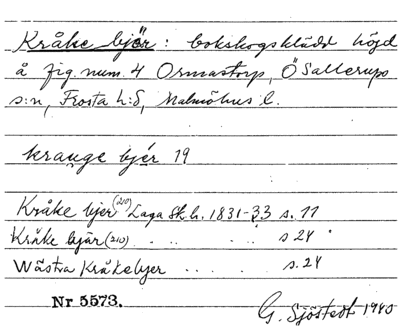 Kråke bjär: bokskogsklädd höjd
å fig. num. 4 Ormastorp, Ö Sallerups
s:n, Frosta h:d, Malmöhus l.
krauge bjér 19
Kråke bjer (210) Laga Sk. h. 1831-33 s. 11
Kråke bjär (210) . . . . . s 24
Wästra Kråkebjer . . . . s. 24
Nr 5573.
G. Sjöstedt 1940